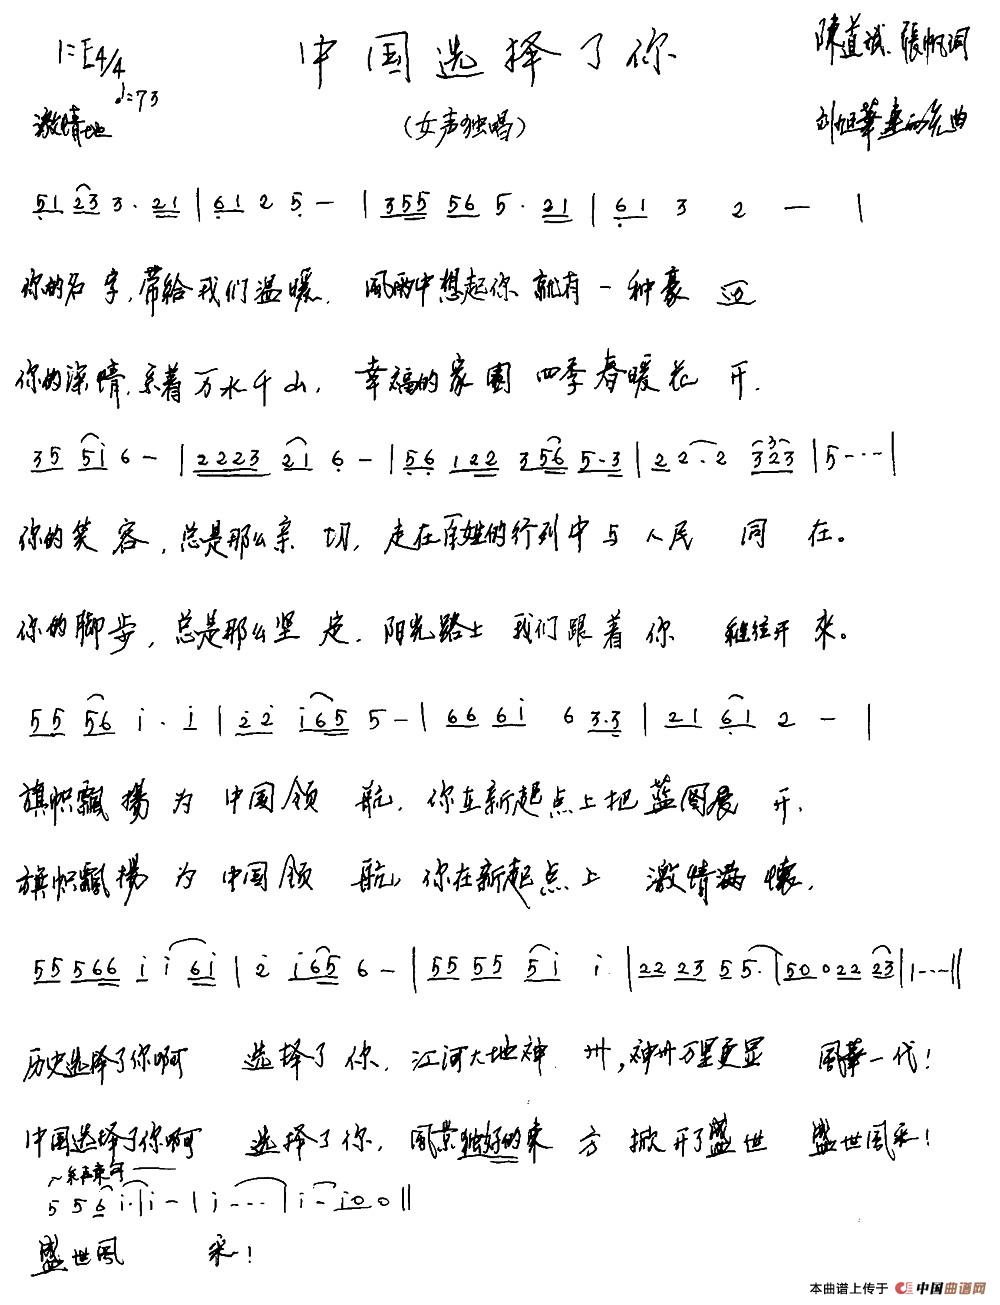 中国选择了你
1=E4/4
陳道斌、張帆词
♩=73
激情地
(女声独唱)
刘旭華 曲
51 23 3· 21 | 61 2 5 — | 355 56 5· 21 | 61 3 2 — |
你的名字,带给我们温暖. 風雨中想起你就有一种豪迈
你的深情,系着万水千山, 幸福的家園四季春暖花开.
35 5i 6 — | 2223 21 6 — | 56 122 356 5·3 | 2 2·2 323 | 5--- |
你的笑容,总是那么亲切, 走在百姓的行列中与人民同在。
你的脚步,总是那么坚定. 阳光路上我们跟着你继往开来。
55 56 i· i | 22 i65 5 — | 66 6i 6 3·3 | 21 61 2 — |
旗帜飘揚为中国领航. 你在新起点上把蓝图展开.
旗帜飘揚为中国领航, 你在新起点上激情满懷.
55 566 i i 6i | 2 i65 6 — | 55 55 5i i· | 22 23 5 5· | 50 022 23 | 1--- ||
历史选择了你啊 选择了你. 江河大地神州,神州万里更显風華一代!
中国选择了你啊 选择了你, 風景独好的東方掀开了盛世 盛世風采!
556 i· | i — | i --- | i — i00 ||
盛世風采!
本曲谱上传于 中国曲谱网